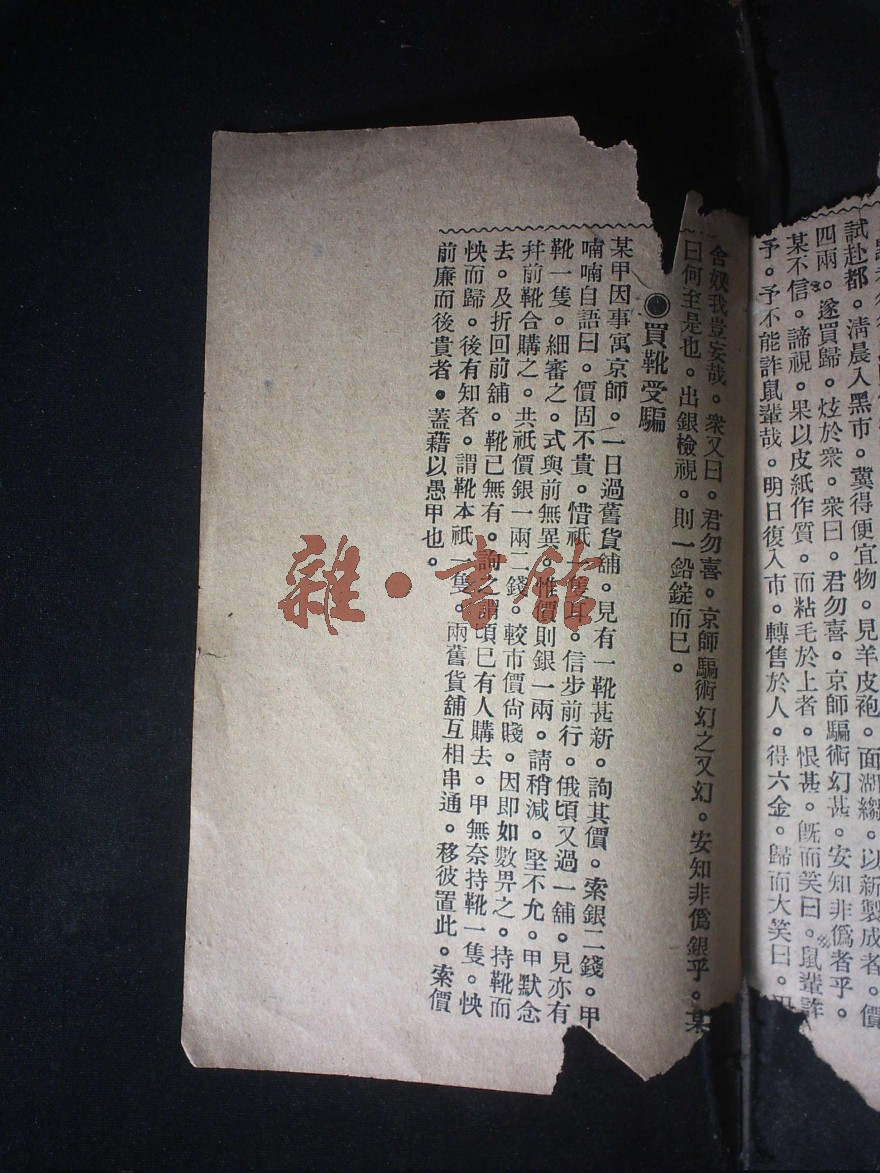 試赴都。清晨入黑市。冀得便宜物。見羊皮袍。面湖縐。以新製成者。價
四兩。遂買歸。炫於衆。衆曰。君勿喜。京師騙術幻甚。安知非僞者乎。
某不信。諦視。果以皮紙作質。而粘毛於上者。恨甚。旣而笑曰。鼠輩詐
予。予不能詐鼠輩哉。明日復入市。轉售於人。得六金。歸而大笑曰。
舍奴我豈妄哉。衆又曰。君勿喜。京師騙術幻之又幻。安知非僞銀乎。某
曰何至是也。出銀檢視。則一鉛錠而巳。
◉買靴受騙
某甲因事寓京師。一日過舊貨舖。見有一靴甚新。詢其價。索銀二錢。甲
喃喃自語曰。價固不貴。惜祇一隻耳。信步前行。俄頃又過一舖。見亦有
靴一隻。細審之。式與前無異。惟價則銀一兩。請稍減。堅不允。甲默念
幷前靴合購之。共祇價銀一兩二錢。較市價尙賤。因即如數畀之。持靴而
去。及折回前舖。靴已無有。詢之。謂頃巳有人購去。甲無奈持靴一隻。怏
怏而歸。後有知者。謂靴本祇一隻。兩舊貨舖互相串通。移彼置此。索價
前廉而後貴者。蓋藉以愚甲也。
雜·書館